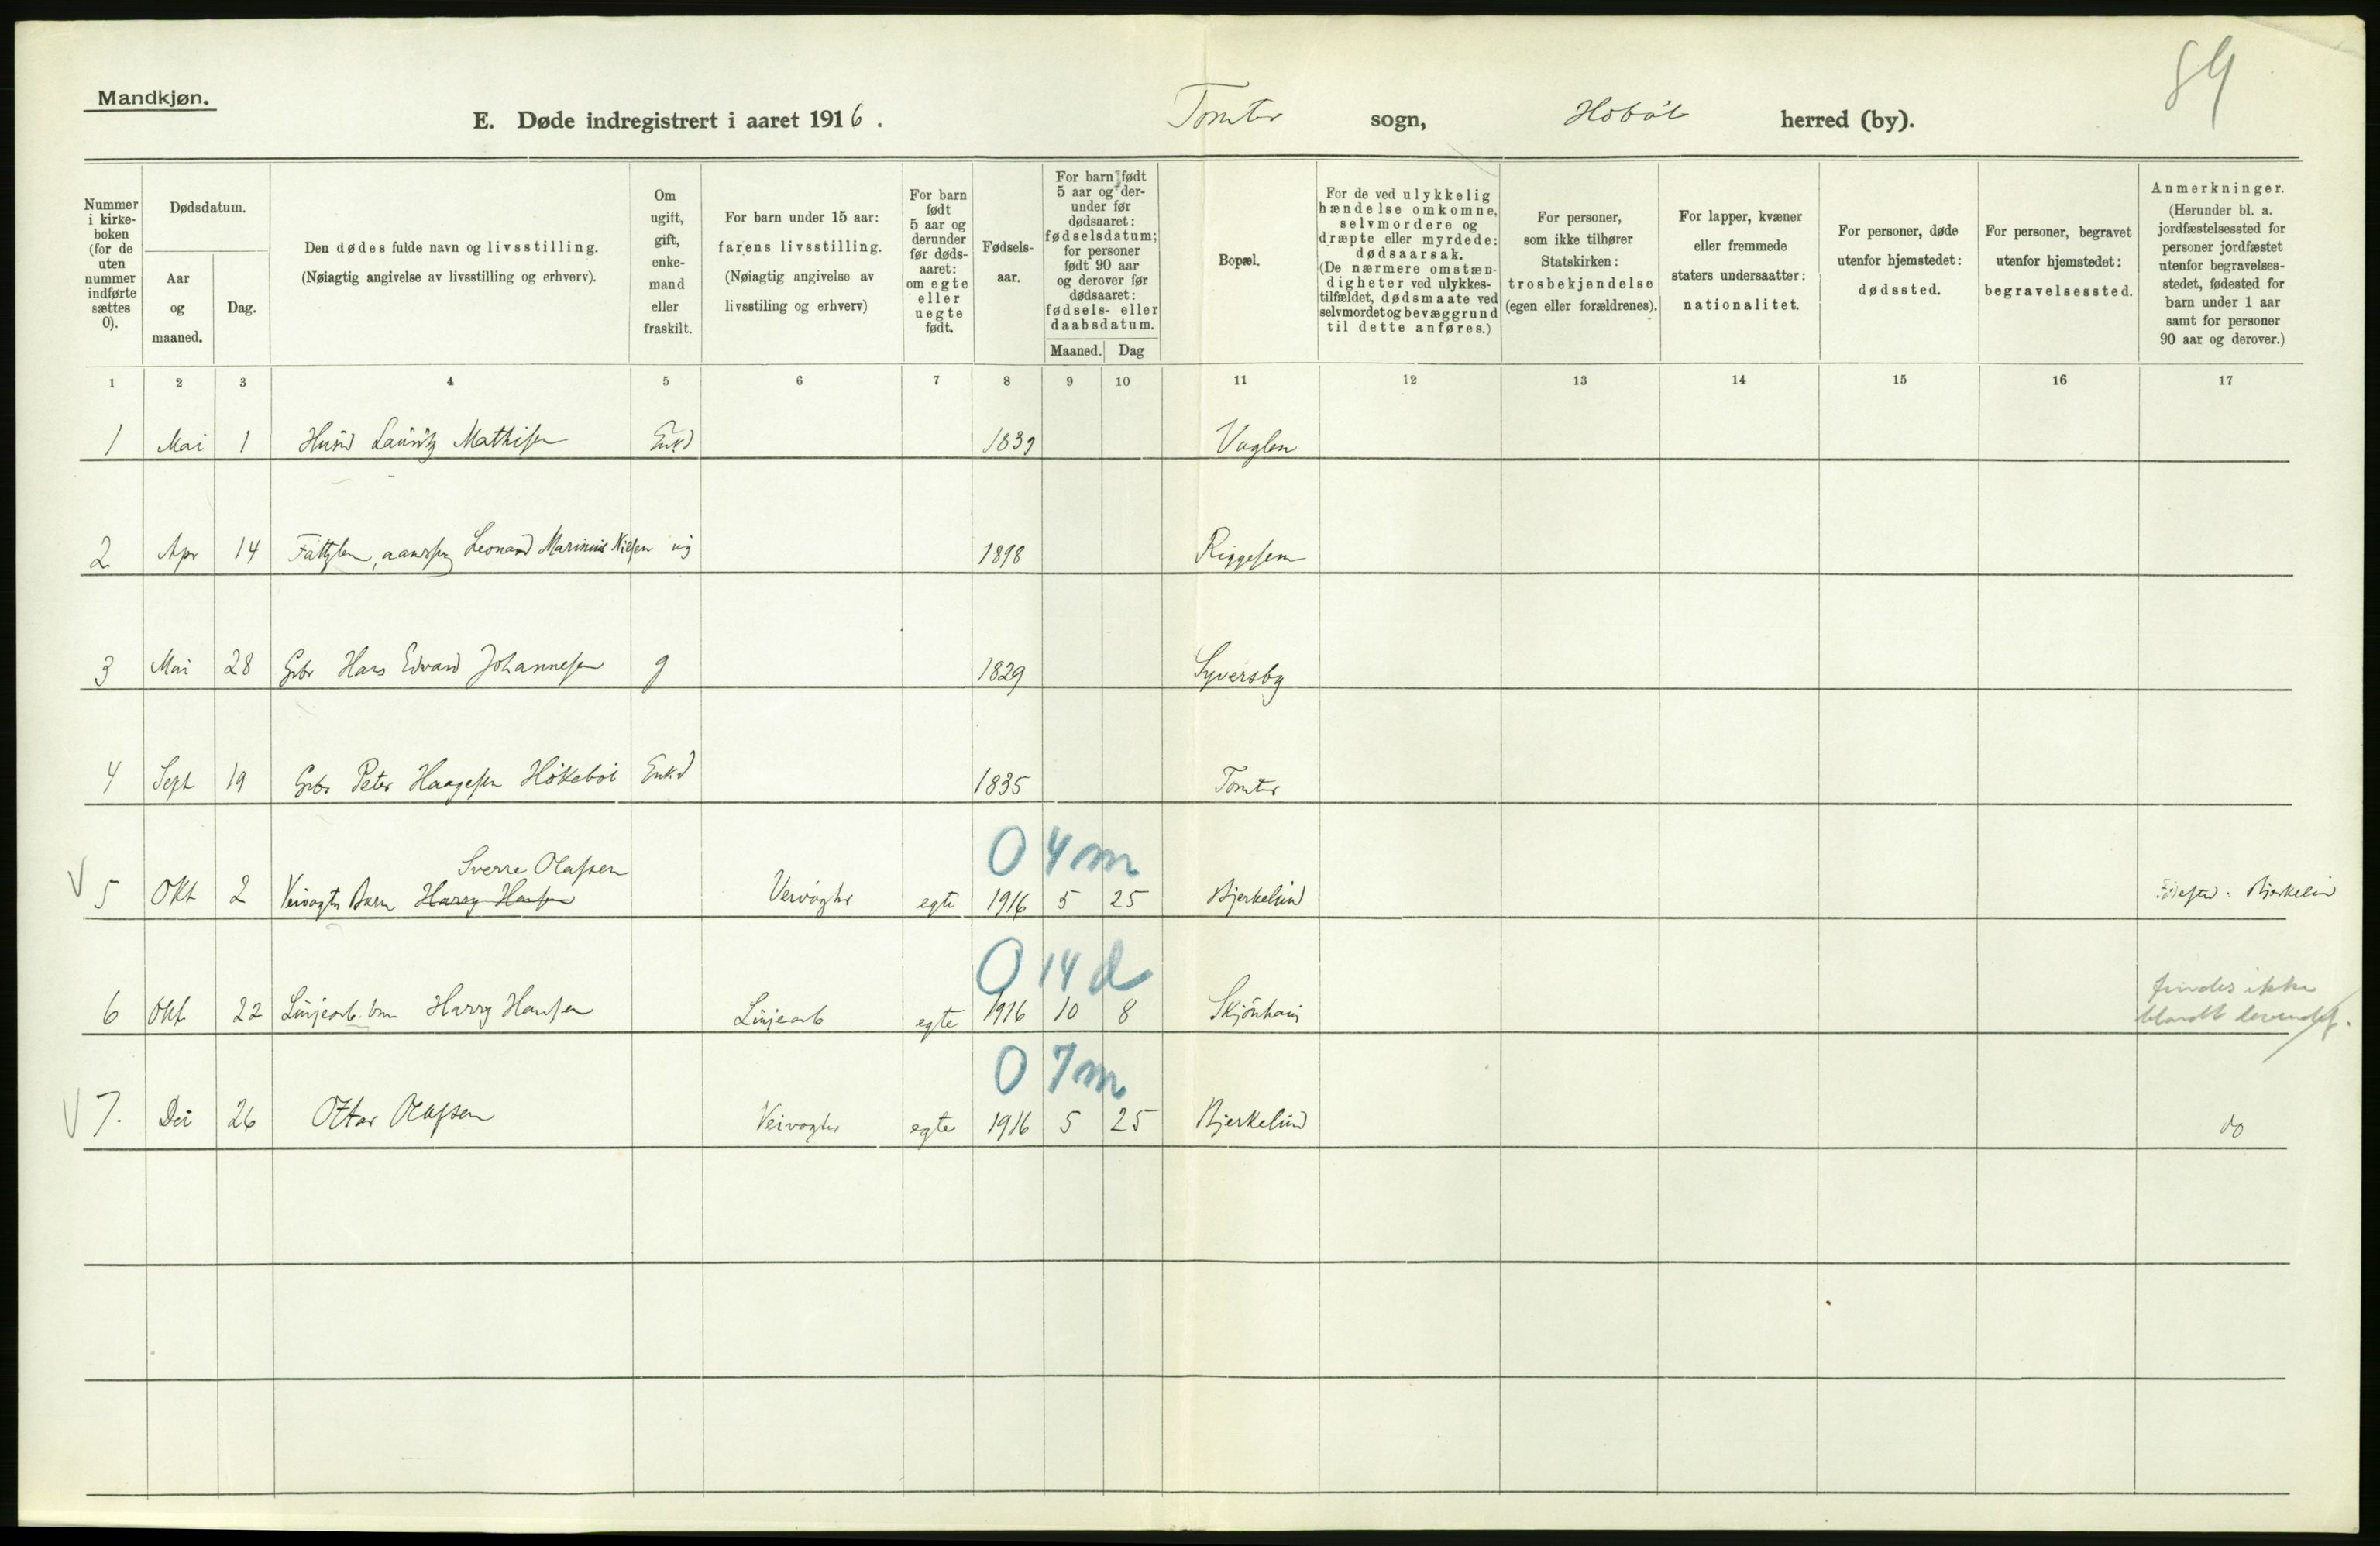 84
Mandkjøn.
E. Døde indregistrert i aaret 1916. Tomter sogn, Hobøl herred (by).
Nummer i kirke-boken (for de uten nummer indførte sættes 0).
Dødsdatum.
Aar og maaned.
Dag.
Den dødes fulde navn og livsstilling.
(Nøiagtig angivelse av livsstilling og erhverv).
Om ugift, gift, enke-mand eller fraskilt.
For barn under 15 aar: farens livsstilling.
(Nøiagtig angivelse av livsstiling og erhverv)
For barn født 5 aar og derunder før døds-aaret: om egte eller uegte født.
Fødsels-aar.
For barn født 5 aar og der-under før dødsaaret: fødselsdatum; for personer født 90 aar og derover før dødsaaret: fødsels- eller daabsdatum.
Maaned. Dag
Bopæl.
For de ved ulykkelig hændelse omkomne, selvmordere og dræpte eller myrdede: dødsaarsak.
(De nærmere omstæn-digheter ved ulykkes-tilfældet, dødsmaate ved selvmordet og bevæggrund til dette anføres.)
For personer, som ikke tilhører Statskirken: trosbekjendelse (egen eller forældrenes).
For lapper, kvæner eller fremmede staters undersaatter: nationalitet.
For personer, døde utenfor hjemstedet: dødssted.
For personer, begravet utenfor hjemstedet: begravelsessted.
Anmerkninger.
(Herunder bl. a. jordfæstelsessted for personer jordfæstet utenfor begravelses-stedet, fødested for barn under 1 aar samt for personer 90 aar og derover.)
1 2 3 4 5 6 7 8 9 10 11 12 13 14 15 16 17
1 Mai 1 Lauritz Mathisen Enkd 1839 Vaglen
2 Apr 14 Leonard Marinius Nielsen ug 1898 Riggesem
3 Mai 28 Gbr Hans Edvard Johannesen g 1829 Syversby
4 Sept 19 Gbr Peter Haagesen Høkeböl Enkd 1835 Tomter
0 4 m
Sverre Olafsen
V 5 Okt 2 Veivogters Barn Harry Hansen Veivogter egte 1916 5 25 Bjerkelund Fødested: Bjerkelun
0 14 d
findes ikke
6 Okt 22 Linjearb. barn Harry Hansen Linjearb egte 1916 10 8 Skjönhaug blandt levendef.
0 7 m
V 7. De 26 Ottar Olafsen Veivogter egte 1916 5 25 Bjerkelund do